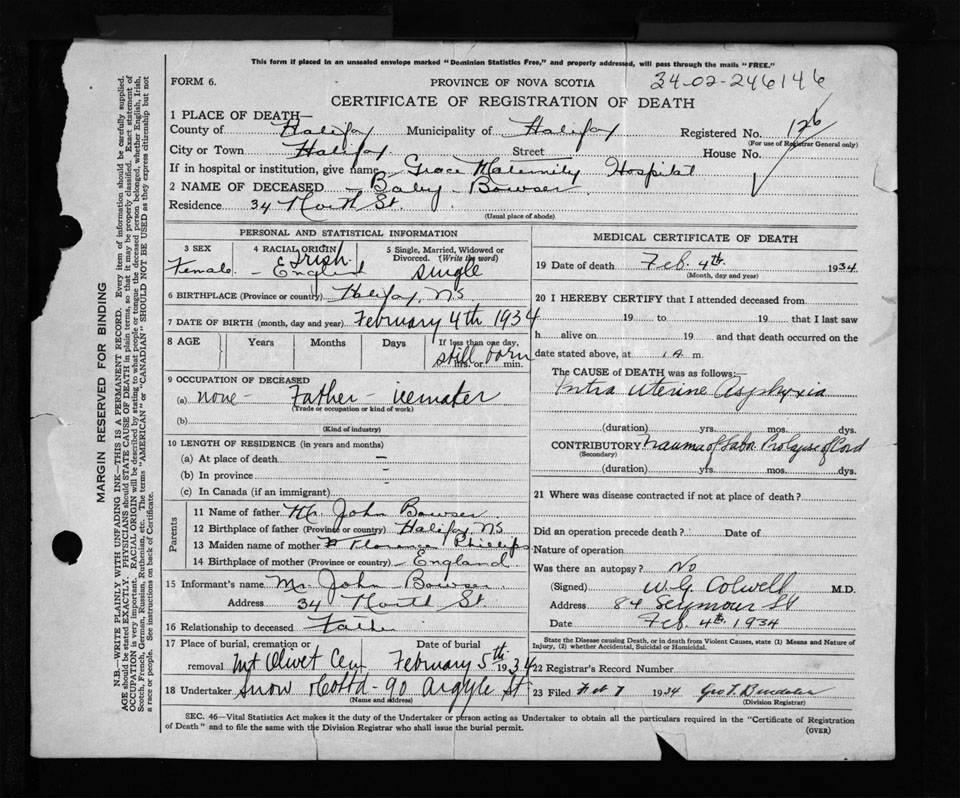 This form if placed in an unsealed envelope marked "Dominion Statistics Free," and properly addressed, will pass through the mails "FREE."
FORM 6. PROVINCE OF NOVA SCOTIA 34-02-246146
CERTIFICATE OF REGISTRATION OF DEATH
1 PLACE OF DEATH—
County of Halifax Municipality of Halifax Registered No. 126
(For use of Registrar General only)
City or Town Halifax Street House No.
If in hospital or institution, give name Grace Maternity Hospital
2 NAME OF DECEASED - Baby - Bowser
Residence 34 North St.
(Usual place of abode)
PERSONAL AND STATISTICAL INFORMATION
3 SEX 4 RACIAL ORIGIN 5 Single, Married, Widowed or Divorced. (Write the word)
Female - Irish English single
6 BIRTHPLACE (Province or country) Halifax, N.S.
7 DATE OF BIRTH (month, day and year) February 4th 1934
8 AGE Years Months Days If less than one day,
still born hrs. or min.
9 OCCUPATION OF DECEASED
(a) none - Father - icemaker
(Trade or occupation or kind of work)
(b)
(Kind of industry)
10 LENGTH OF RESIDENCE (in years and months)
(a) At place of death –
(b) In province -
(c) In Canada (if an immigrant)
Parents
11 Name of father Mr. John Bowser
12 Birthplace of father (Province or country) Halifax, N.S.
13 Maiden name of mother Florence Phillips
14 Birthplace of mother (Province or country) - England
15 Informant's name Mr. John Bowser
Address 34 North St.
16 Relationship to deceased Father
17 Place of burial, cremation or removal Mt Olivet Cem Date of burial February 5th 1934
18 Undertaker Snow & Co Ltd - 90 Argyle St
(Name and address)
MEDICAL CERTIFICATE OF DEATH
19 Date of death Feb. 4th. 1934
(Month, day and year)
20 I HEREBY CERTIFY that I attended deceased from
19 to 19 that I last saw
h alive on 19 and that death occurred on the
date stated above, at 1 A m.
The CAUSE of DEATH was as follows:—
Intra Uterine Asphyxia
(duration) yrs. mos. dys.
CONTRIBUTORY Trauma of Labor Prolapse of Cord
(Secondary)
(duration) yrs. mos. dys.
21 Where was disease contracted if not at place of death?
Did an operation precede death? Date of
Nature of operation
Was there an autopsy? No
(Signed) W. G. Colwell M.D.
Address 84 Seymour St
Date Feb. 4th. 1934
State the Disease causing Death, or in death from Violent Causes, state (1) Means and Nature of
Injury, (2) whether Accidental, Suicidal or Homicidal.
22 Registrar's Record Number
23 Filed Feb 7 1934 Geo T.
(Division Registrar)
SEC. 46—Vital Statistics Act makes it the duty of the Undertaker or person acting as Undertaker to obtain all the particulars required in the "Certificate of Registration
of Death" and to file the same with the Division Registrar who shall issue the burial permit.
(OVER)
MARGIN RESERVED FOR BINDING
N.B.—WRITE PLAINLY WITH UNFADING INK—THIS IS A PERMANENT RECORD. Every item of information should be carefully supplied.
AGE should be stated EXACTLY. PHYSICIANS should STATE CAUSE OF DEATH in plain terms, so that it may be properly classified. Exact statement of
OCCUPATION is very important. RACIAL ORIGIN will be described by stating to what people or tongue the deceased person belonged, whether English, Irish,
Scotch, French, German, Russian, Ruthenian, etc. The terms "AMERICAN" or "CANADIAN" SHOULD NOT BE USED as they express citizenship but not
a race or people. See instructions on back of Certificate.